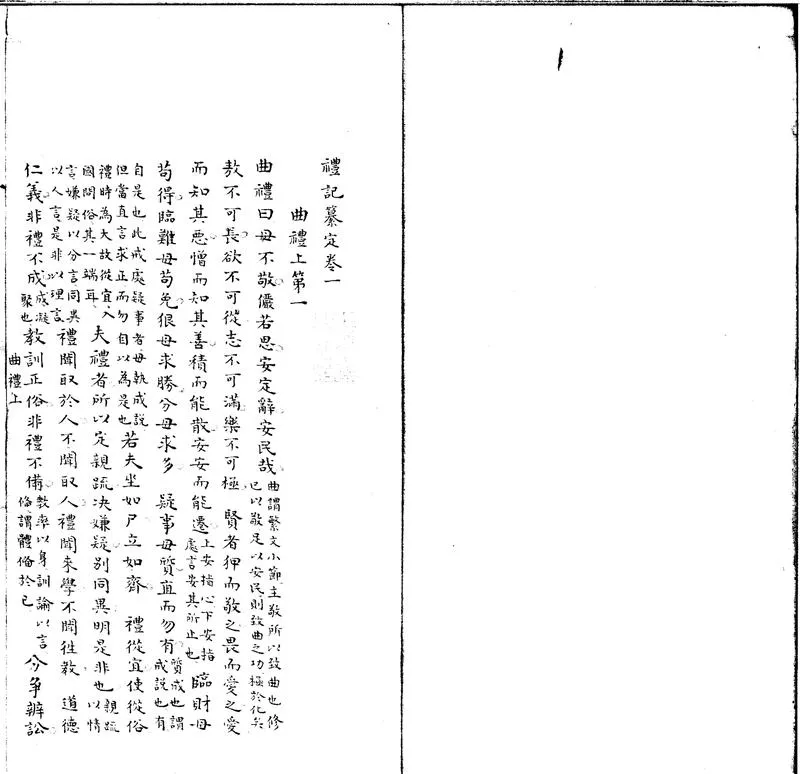 禮記纂定卷一
曲禮上第一
曲禮曰毋不敬儼若思安定辭安民哉曲謂繁文小節主敬所以致曲也修己以敬足以安民則致曲之功極於化矣
敖不可長欲不可從志不可滿樂不可極 賢者狎而敬之畏而愛之愛
而知其惡憎而知其善積而能散安安而能遷上安指心下安指處言安其所止也臨財毋
苟得臨難毋苟免狠毋求勝分毋求多 疑事毋質直而勿有質成也謂成說也有
自是也此戒處疑事者毋執成說但當直言求正而勿自以為是也若夫坐如尸立如齊 禮從宜使從俗
禮時為大故從宜入國問俗其一端耳夫禮者所以定親疏決嫌疑別同異明是非也親疏以情
言嫌疑以分言同異以人言是非以理言禮聞取於人不聞取人禮聞來學不聞往教 道德
仁義非禮不成成凝聚也教訓正俗非禮不備教率以身訓論以言備謂體備於己分爭辨訟
曲禮上